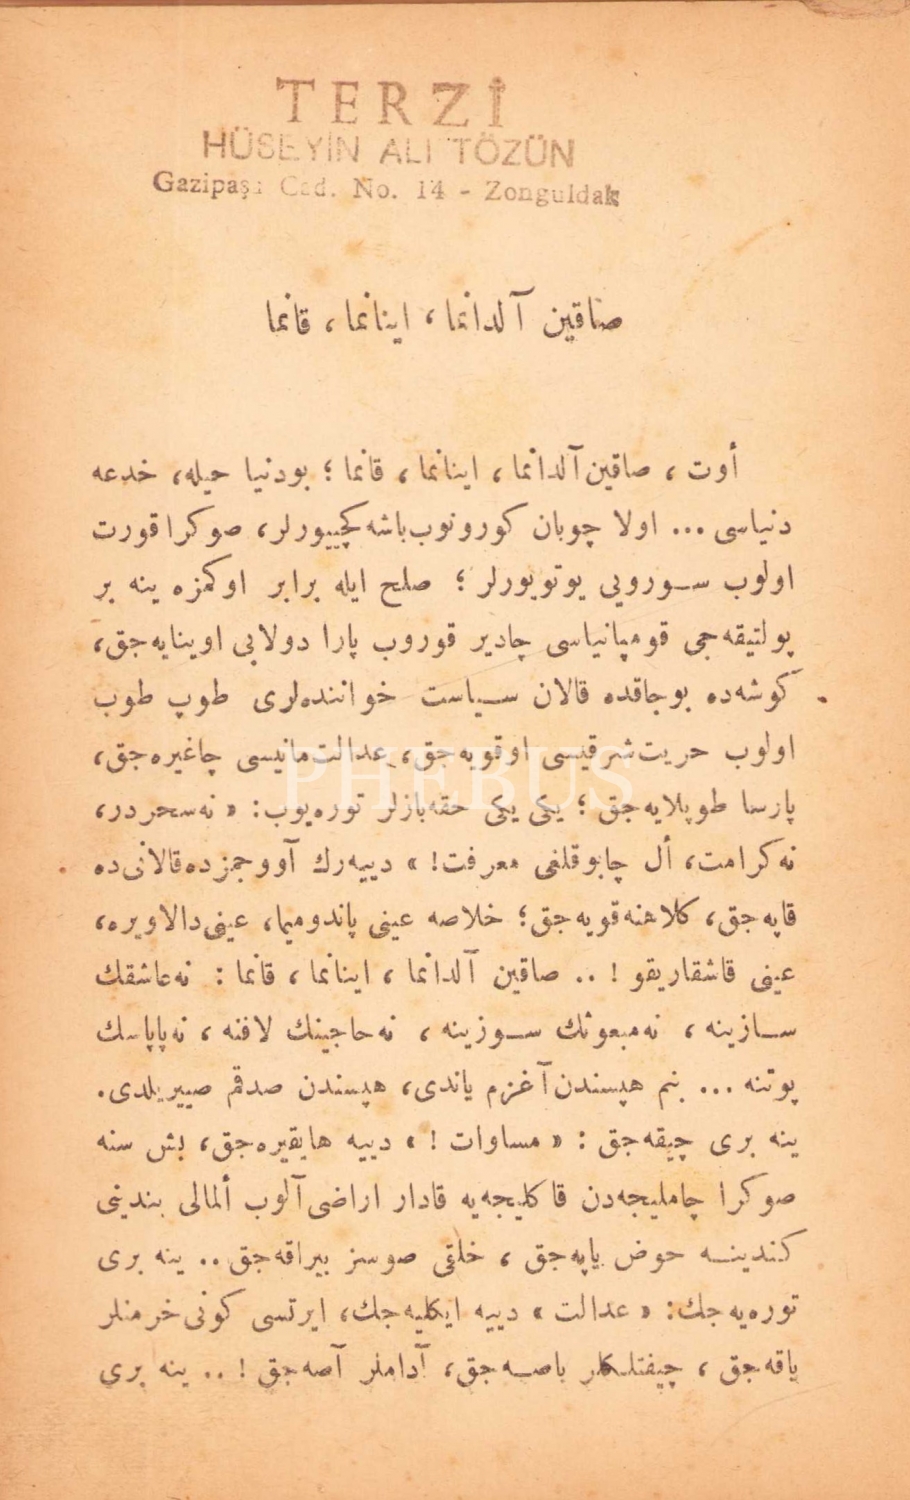 TERZİ
HÜSEYİN ALİ TÖZÜN
Gazipaşa Cad. No. 14 - Zonguldak
صاقين آلدانما، اينانما، قانما
أوت ، صاقين آلدانما، اينانما، قانما ؛ بودنيا حيله، خدعه
دنياسى ... اولا چوبان كورونوب باشه كچييورلر، صوكرا قورت
اولوب سورويى يوتويورلر ؛ صلح ايله برابر اوكمزه ينه بر
پولتيقه‌جى قومپانياسى چادير قوروب پارا دولابى اوينايه‌جق،
كوشه‌ده بوجاقده قالان سياست خواننده‌لرى طوپ طوپ
اولوب حريت شرقيسى اوقويه‌جق، عدالت مانيسى چاغيره‌جق،
پارسا طوپلايه‌جق ؛ يكى يكى حقه‌بازلر توره‌يوب: « نه سحردر،
نه كرامت، أل چابوقلغى معرفت! » دييه‌رك آووجمزده قالانى ده
قاپه‌جق، كلاهنه قويه‌جق؛ خلاصه عينى پاندوميما، عينى دالاويره،
عينى قاشقاريقو ! .. صاقين آلدانما ، اينانما ، قانما : نه عاشقك
سازينه ، نه مبعوثك سوزينه ، نه حاجينك لافنه ، نه پاپاسك
پوتنه ... بنم هپسندن آغزم ياندى، هپسندن صدقم صييريلدى.
ينه برى چيقه‌جق : « مساوات ! » دييه هايقيره‌جق، بش سنه
صوكرا چامليجه‌دن قاكليجه‌يه قادار اراضى آلوب ألمالى بندينى
كندينه حوض ياپه‌جق ، خلقى صوسز بيراقه‌جق .. ينه برى
توره‌يه‌جك: « عدالت » دييه ايكليه‌جك، ايرتسى كونى خرمنلر
ياقه‌جق ، چيفتلكلر باصه‌جق، آداملر آصه‌جق ! .. ينه برى
PHEBUS